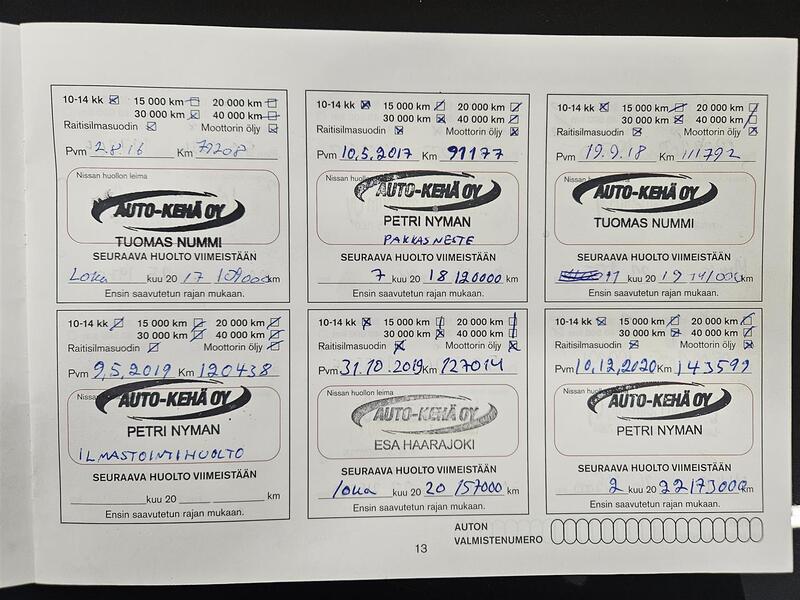 10-14 kk 15 000 km 20 000 km
30 000 km 40 000 km
Raitisilmasuodin Moottorin öljy
Pvm 2.8.16 Km 79208
Nissan huollon leima
AUTO-KEHÄ OY
TUOMAS NUMMI
SEURAAVA HUOLTO VIIMEISTÄÄN
Loka kuu 20 17 109000 km
Ensin saavutetun rajan mukaan.
10-14 kk 15 000 km 20 000 km
30 000 km 40 000 km
Raitisilmasuodin Moottorin öljy
Pvm 10.5.2017 Km 91177
Nissan huollon
AUTO-KEHÄ OY
PETRI NYMAN
PAKKASNESTE
SEURAAVA HUOLTO VIIMEISTÄÄN
7 kuu 20 18 120000 km
Ensin saavutetun rajan mukaan.
10-14 kk 15 000 km 20 000 km
30 000 km 40 000 km
Raitisilmasuodin Moottorin öljy
Pvm 19.9.18 Km 111792
Nissan huollon
AUTO-KEHÄ OY
TUOMAS NUMMI
SEURAAVA HUOLTO VIIMEISTÄÄN
kuu 20 19 141000 km
Ensin saavutetun rajan mukaan.
10-14 kk 15 000 km 20 000 km
30 000 km 40 000 km
Raitisilmasuodin Moottorin öljy
Pvm 9,5,2019 Km 120438
Nissan
AUTO-KEHÄ OY
PETRI NYMAN
ILMASTOINTIHUOLTO
SEURAAVA HUOLTO VIIMEISTÄÄN
kuu 20 km
Ensin saavutetun rajan mukaan.
10-14 kk 15 000 km 20 000 km
30 000 km 40 000 km
Raitisilmasuodin Moottorin öljy
Pvm 31.10.2019 Km 127014
Nissan huollon leima
AUTO-KEHÄ OY
ESA HAARAJOKI
SEURAAVA HUOLTO VIIMEISTÄÄN
loka kuu 20 20 157000 km
Ensin saavutetun rajan mukaan.
10-14 kk 15 000 km 20 000 km
30 000 km 40 000 km
Raitisilmasuodin Moottorin öljy
Pvm 10,12,2020 Km 143599
Nissan
AUTO-KEHÄ OY
PETRI NYMAN
SEURAAVA HUOLTO VIIMEISTÄÄN
2 kuu 20 22 173000 km
Ensin saavutetun rajan mukaan.
AUTON
VALMISTENUMERO
13